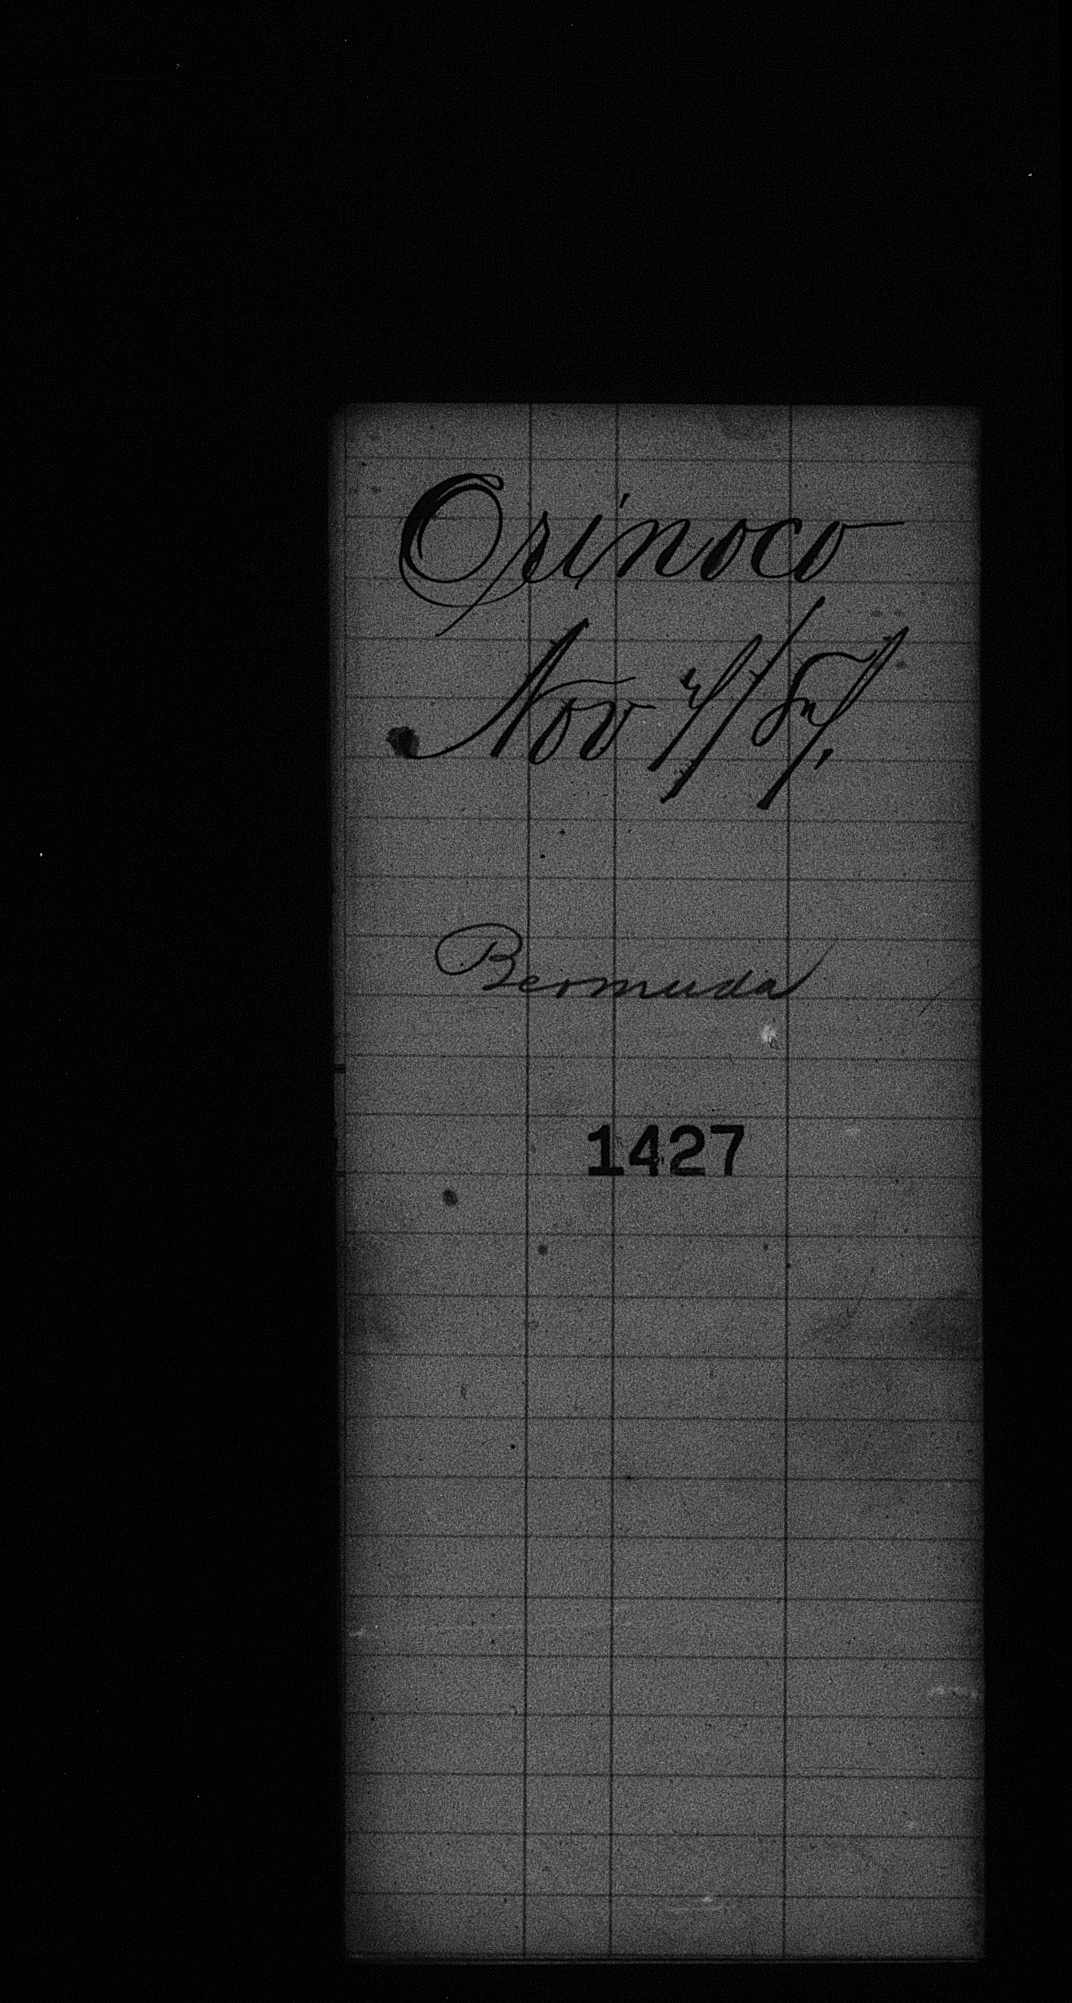 Orinoco
Nov 7/87,
Bermuda
1427